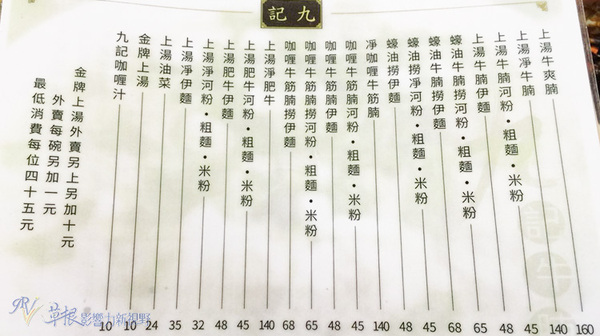 九記
上湯牛爽腩 160
上湯淨牛腩 140
上湯牛腩河粉・粗麵・米粉 45
上湯牛腩伊麵 48
蠔油牛腩撈河粉・粗麵・米粉 65
蠔油牛腩撈伊麵 68
蠔油撈淨河粉・粗麵・米粉 45
蠔油撈伊麵 48
淨咖喱牛筋腩 140
咖喱牛筋腩河粉・粗麵・米粉 45
咖喱牛筋腩伊麵 48
咖喱牛筋腩撈河粉・粗麵・米粉 65
咖喱牛筋腩撈伊麵 68
上湯淨肥牛 140
上湯肥牛河粉・粗麵・米粉 45
上湯肥牛伊麵 48
上湯淨河粉・粗麵・米粉 32
上湯淨伊麵 35
上湯油菜 24
金牌上湯 10
九記咖喱汁 10
金牌上湯外賣另上另加十元
外賣每碗另加一元
最低消費每位四十五元
草根影響力新視野